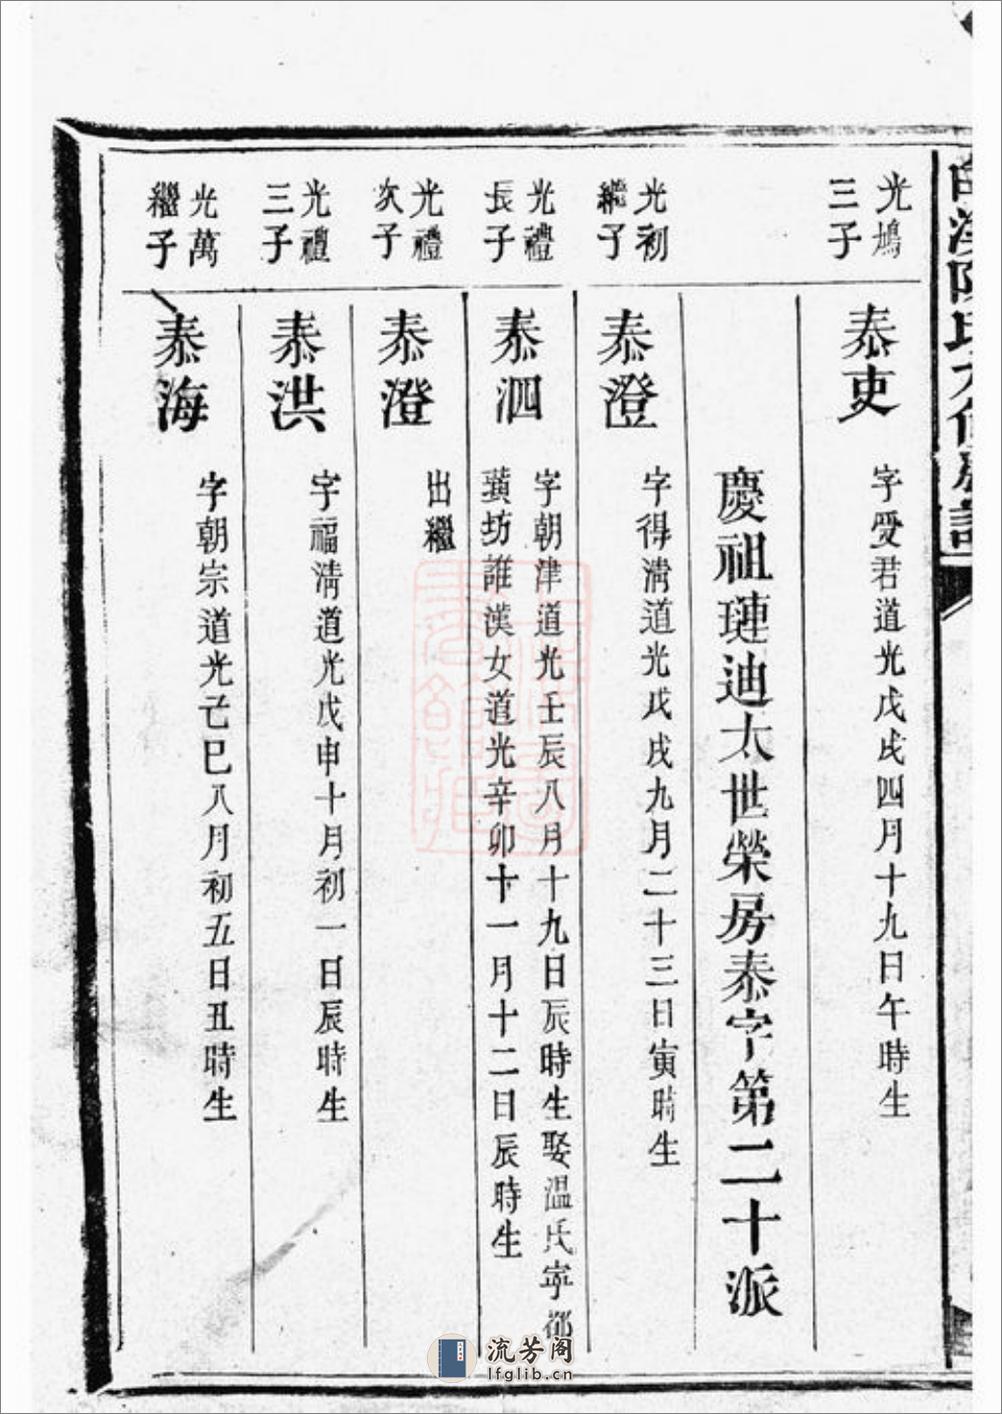 光鳩
三子
泰吏
字受君道光戊戌四月十九日午時生
慶祖璉迪太世榮房泰字第二十派
光初
繼子
泰澄
字得淸道光戊戌九月二十三日寅時生
光禮
長子
泰泗
字朝津道光壬辰八月十九日辰時生娶温氏寧都
璜坊誰漢女道光辛卯十一月十二日辰時生
光禮
次子
泰澄
出繼
光禮
三子
泰洪
字福淸道光戊申十月初一日辰時生
光萬
繼子
泰海
字朝宗道光己巳八月初五日丑時生
流芳阁
lfglib.cn